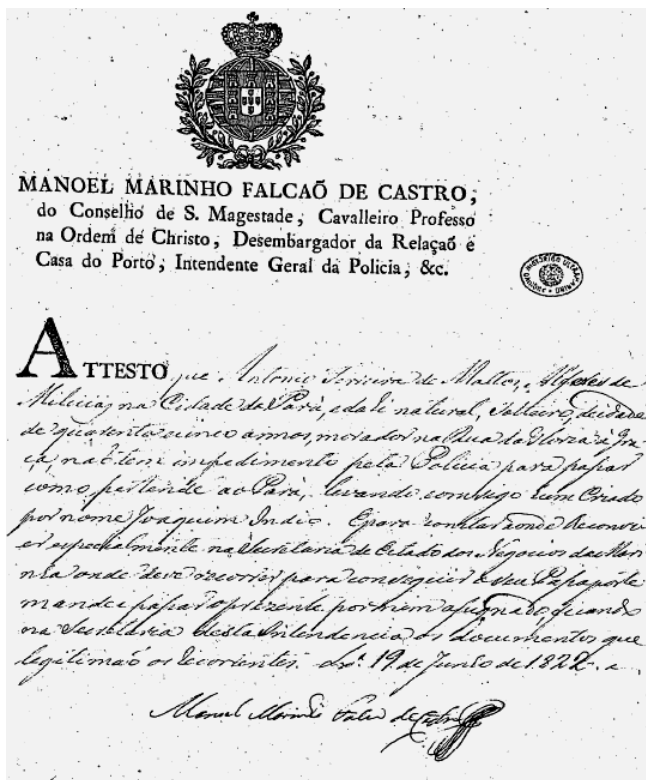 MANOEL MARINHO FALCAÕ DE CASTRO;
do Conselho de S. Magestade, Cavalleiro Professo
na Ordem de Christo, Desembargador da Relaçaõ e
Casa do Porto, Intendente Geral da Policia, &c.
ATTESTO que Antonio Ferreira de Mattos, Alferes de
Milicias, na Cidade do Pará, e dali natural, Solteiro, de idade
de quarenta e cinco annos, morador na Rua da Gloria á Gra
ça, naõ tem impedimento pela Policia para passar
como pertende ao Pará, levando comsigo um Criado
por nome Joaquim Indio. E para constar aonde
er especialmente na Secretaria de Estado dos Negocios da Mari
nha onde deve recorrer para conseguir o seu Passaporte
mandei passar o prezente por mim assignado, ficando
na Secretaria desta Intendencia os documentos que
legitimaõ os recorrentes. 19 de Junho de 1822
Manoel Marinho Falcaõ de Castro